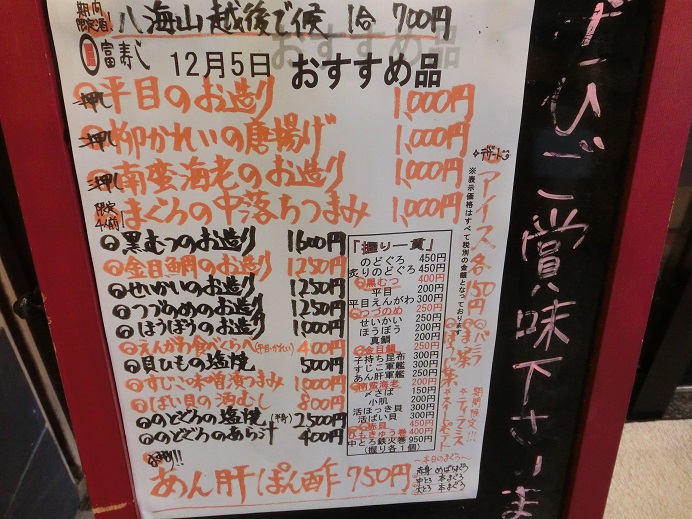 期間限定酒！
八海山 越後で候 1合 700円
富寿し 12月5日 おすすめ品
押し 平目のお造り 1,000円
押し 柳かれいの唐揚げ 1,000円
押し 南蛮海老のお造り 1,000円
限定4人前! まぐろの中落ちつまみ 1,000円
黒むつのお造り 1600円
金目鯛のお造り 1250円
せいかいのお造り 1250円
つづのめのお造り 1250円
ほうぼうのお造り 1000円
えんがわ食べくらべ(平目・かれい) 400円
貝ひもの塩焼 500円
すじこの味噌漬つまみ 1000円
ばい貝の酒むし 800円
のどぐろの塩焼(半身) 2500円
のどぐろのあら汁 400円
あん肝ぽん酢 750円
「握り一貫」
のどぐろ 450円
炙りのどぐろ 450円
黒むつ 400円
平目 200円
平目えんがわ 300円
つづのめ 250円
せいかい 250円
ほうぼう 200円
真鯛 200円
金目鯛 250円
子持ち昆布 300円
すじこ軍艦 300円
あん肝軍艦 300円
南蛮海老 200円
〆さば 150円
小肌 200円
活ほっき貝 300円
活ばい貝 300円
赤貝 450円
ひもきゅう巻 400円
中とろ鉄火巻 950円
(握り各1個)
～本日のまぐろ～
赤身 めばちまぐろ
中とろ 本まぐろ
大とろ 本まぐろ
デザート
アイス各150円
※表示価格はすべて税別の金額となっております
バニラ
期間限定!!!
ティラミス
ぜひご賞味下さいま